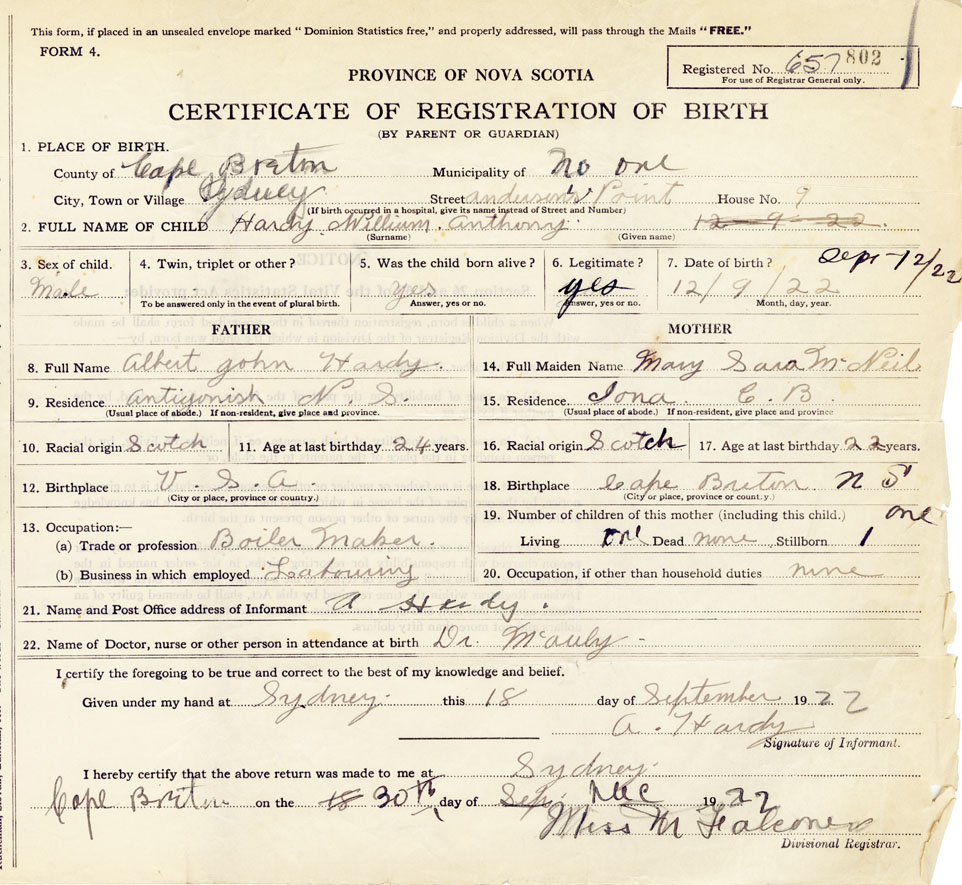 This form, if placed in an unsealed envelope marked "Dominion Statistics free," and properly addressed, will pass through the Mails "FREE."
FORM 4.
Registered No. 657 802
For use of Registrar General only.
PROVINCE OF NOVA SCOTIA
CERTIFICATE OF REGISTRATION OF BIRTH
(BY PARENT OR GUARDIAN)
1. PLACE OF BIRTH.
County of Cape Breton Municipality of No one
City, Town or Village Sydney Street anderson's Point House No. 9
(If birth occurred in a hospital, give its name instead of Street and Number)
2. FULL NAME OF CHILD Hardy William Anthony 12-9-22.
(Surname) (Given name)
3. Sex of child. 4. Twin, triplet or other? 5. Was the child born alive? 6. Legitimate? 7. Date of birth? Sept 12/22
Male yes yes 12/9/22
To be answered only in the event of plural birth. Answer, yes or no. Answer, yes or no. Month, day, year.
FATHER MOTHER
8. Full Name Albert john Hardy. 14. Full Maiden Name Mary Sara McNeil
9. Residence Antigonish N. S. 15. Residence Iona C. B.
(Usual place of abode.) If non-resident, give place and province. (Usual place of abode.) If non-resident, give place and province
10. Racial origin Scotch 11. Age at last birthday 24 years. 16. Racial origin Scotch 17. Age at last birthday 22 years.
12. Birthplace U. S. A. 18. Birthplace Cape Breton N S
(City or place, province or country.) (City or place, province or country.)
13. Occupation:— 19. Number of children of this mother (including this child.) one
(a) Trade or profession Boiler Maker. Living one Dead none Stillborn 1
(b) Business in which employed Labouring 20. Occupation, if other than household duties none
21. Name and Post Office address of Informant A Hardy.
22. Name of Doctor, nurse or other person in attendance at birth Dr. McAuly -
I certify the foregoing to be true and correct to the best of my knowledge and belief.
Given under my hand at Sydney. this 18 day of September 1922
A. Hardy
Signature of Informant.
I hereby certify that the above return was made to me at Sydney.
Cape Breton on the 18 30th day of Sep. Dec 1922
Miss M Falconer
Divisional Registrar.